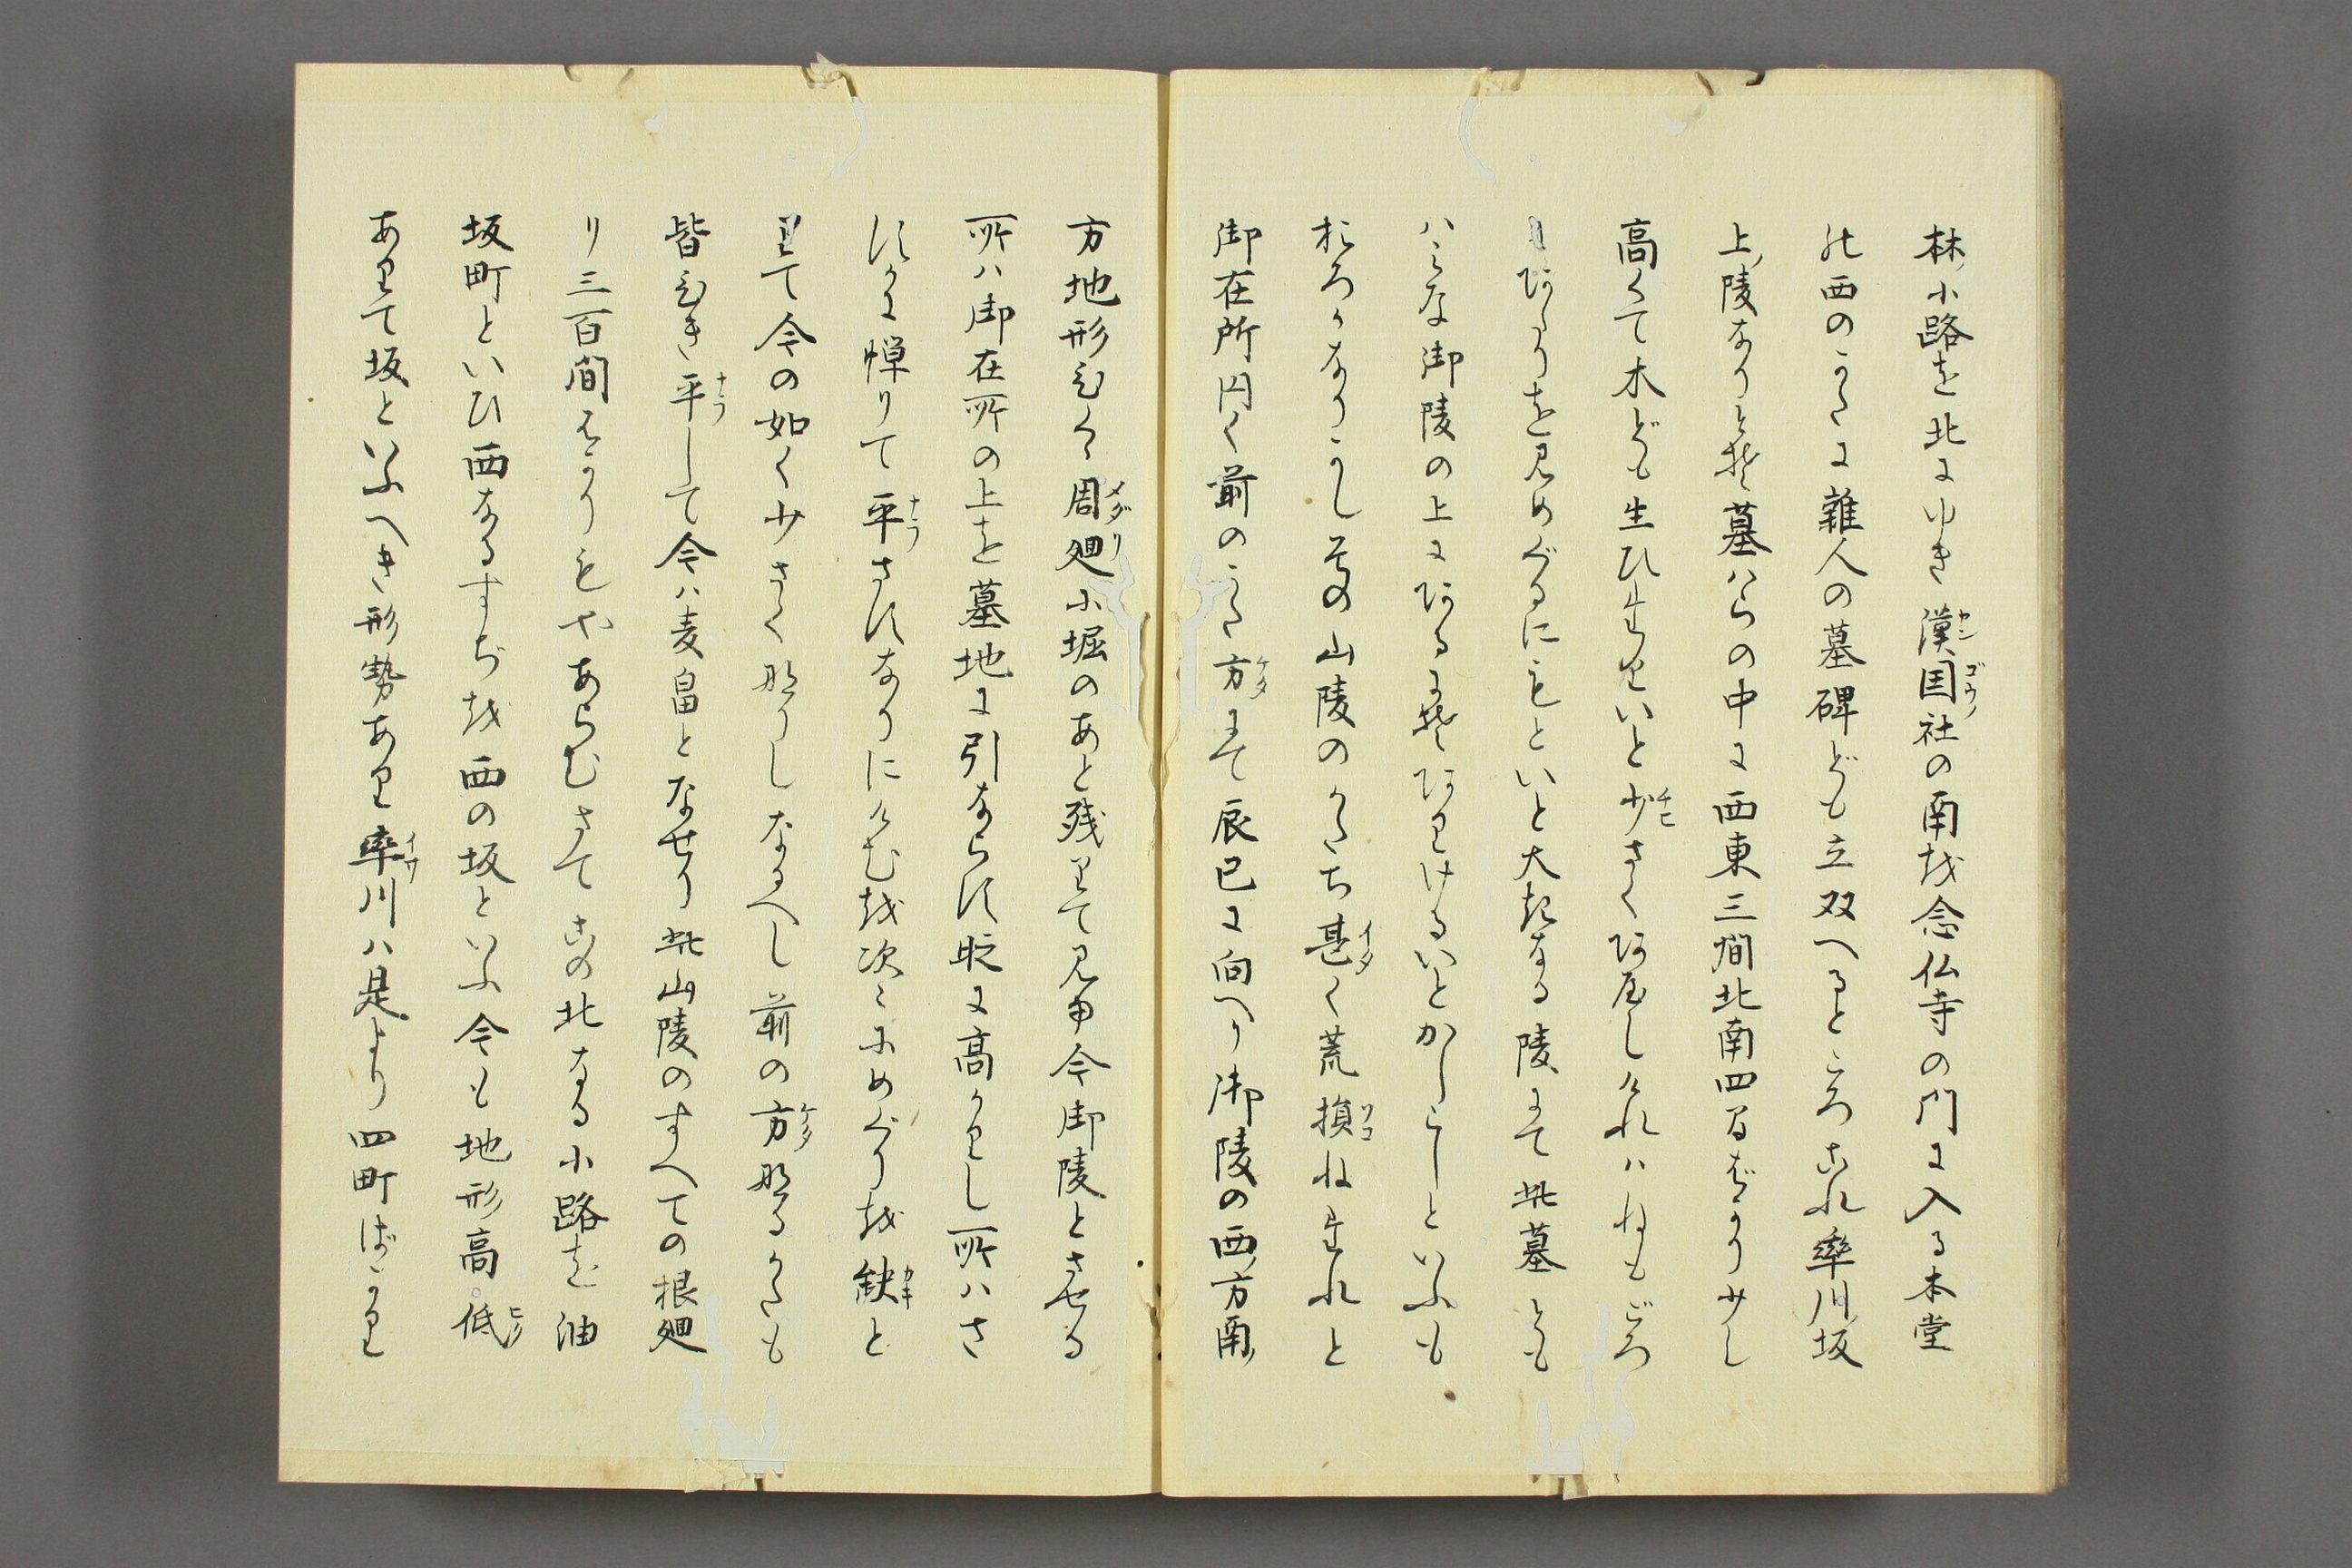 林ノ小路を北にゆき漢国社の南なる念仏寺の門に入る本堂
の西のかたに雑人の墓碑ども立双へるところこれ率川坂
上ノ陵なりとぞ墓はらの中に西東三間北南四間ばかり少し
高くて木ども生ひ生りいと少さく見えしかれハねもころ
あたりを見めぐるにもといと大きなる陵にて此墓ども
ハみな御陵の上にあるにぞありけるいとかしこしといふも
おろかなりかし の山陵のかたち甚く荒損ね坐れと
御在所円く前のかた方にて辰巳に向へり御陵の西方南
方地形ひくく周廻小堀のあと残りて見ゆ今御陵とさせる
所ハ御在所の上を墓地に引ならす時に高かりし所ハさ
すかに憚りて平さすなりにけむを次々にめぐりを缺と
りて今の如く少さく成りしなるへし前の方なるかたも
皆ひき平して今ハ麦畠となせり此山陵のすへての根廻
り三百間はかりもやあらむさてこの北なる小路を油
坂町といひ西なるすぢを西の坂といふ今も地形高低
ありて坂といふへき形勢あり率川ハ是より四町ばかり